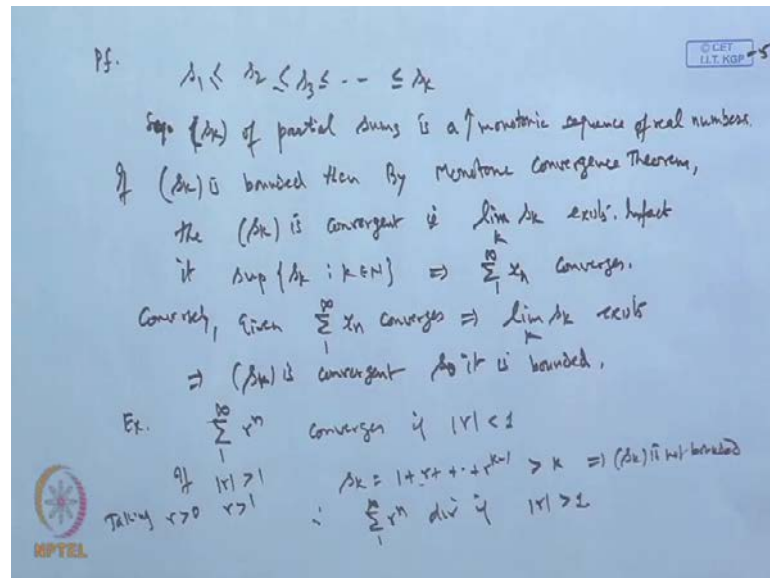 Pf. s₁ ≤ s₂ ≤ s₃ ≤ -- ≤ sₖ
© CET
I.I.T. KGP -5
(sₖ) of partial sums is a ↑ monotonic sequence of real numbers.
If (sₖ) is bounded then By Monotone Convergence Theorem,
the (sₖ) is convergent ie lim sₖ exists. Infact
k
it sup {sₖ : k ∈ N} ⇒ ∑₁^∞ xₙ converges.
Conversely, Given ∑₁^∞ xₙ converges ⇒ lim sₖ exists
k
⇒ (sₖ) is convergent so it is bounded.
Ex. ∑₁^∞ rⁿ converges if |r| < 1
If |r| > 1 sₖ = 1 + r + ·· + r^{k-1} > k ⇒ (sₖ) is not bounded
Taking r > 0 r > 1 ∴ ∑₁^∞ rⁿ div if |r| > 1
NPTEL